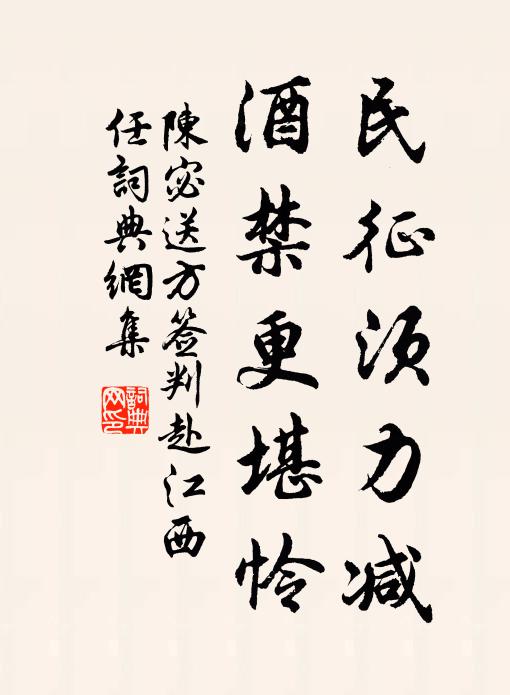 民征须力减
酒禁更堪怜
陳宓送方签判赴江西
任詞典網集
詞典网印